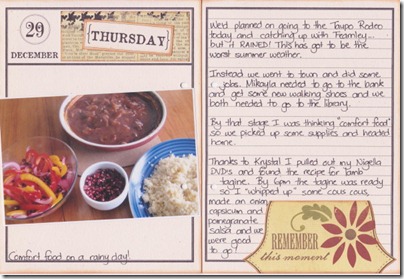 29
DECEMBER
THURSDAY
Comfort food on a rainy day!
We'd planned on going to the Taupo Rodeo
today and catching up with Fearnley...
but it RAINED! This has got to be the
worst summer weather.
Instead we went to town and did some
jobs. Mikayla needed to go to the bank
and get some new walking shoes and we
both needed to go to the library.
By that stage I was thinking "comfort food"
so we picked up some supplies and headed
home.
Thanks to Krystal I pulled out my Nigella
DVD's and found the recipe for lamb
tagine. By 6pm the tagine was ready
so I "whipped up" some cous cous,
made an onion
capsicum and
pomegranate
salsa and we
were good
to go!
REMEMBER
this moment